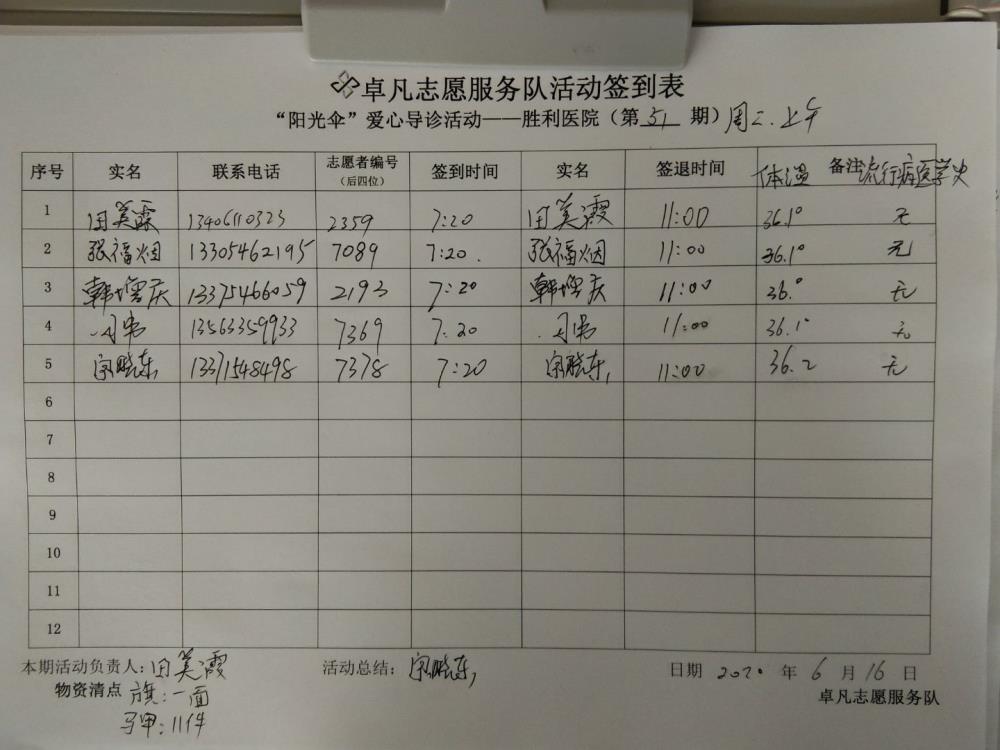 卓凡志愿服务队活动签到表
“阳光伞”爱心导诊活动——胜利医院（第 51 期）周二.上午
序号 实名 联系电话 志愿者编号（后四位） 签到时间 实名 签退时间 体温 备注 流行病医学史
1 田美霞 13406110323 2359 7:20 田美霞 11:00 36.1° 无
2 张福烟 13305462195 7089 7:20. 张福烟 11:00 36.1° 无
3 韩增庆 13375466059 2193 7:20 韩增庆 11:00 36.° 无
4 13563359933 7369 7:20 11:00 36.1° 无
5 宗晓东 13371548498 7378 7:20 宗晓东 11:00 36.2 无
6
7
8
9
10
11
12
本期活动负责人:田美霞 活动总结: 宗晓东 日期 2020 年 6 月 16 日
物资清点 旗:一面 卓凡志愿服务队
马甲:11件